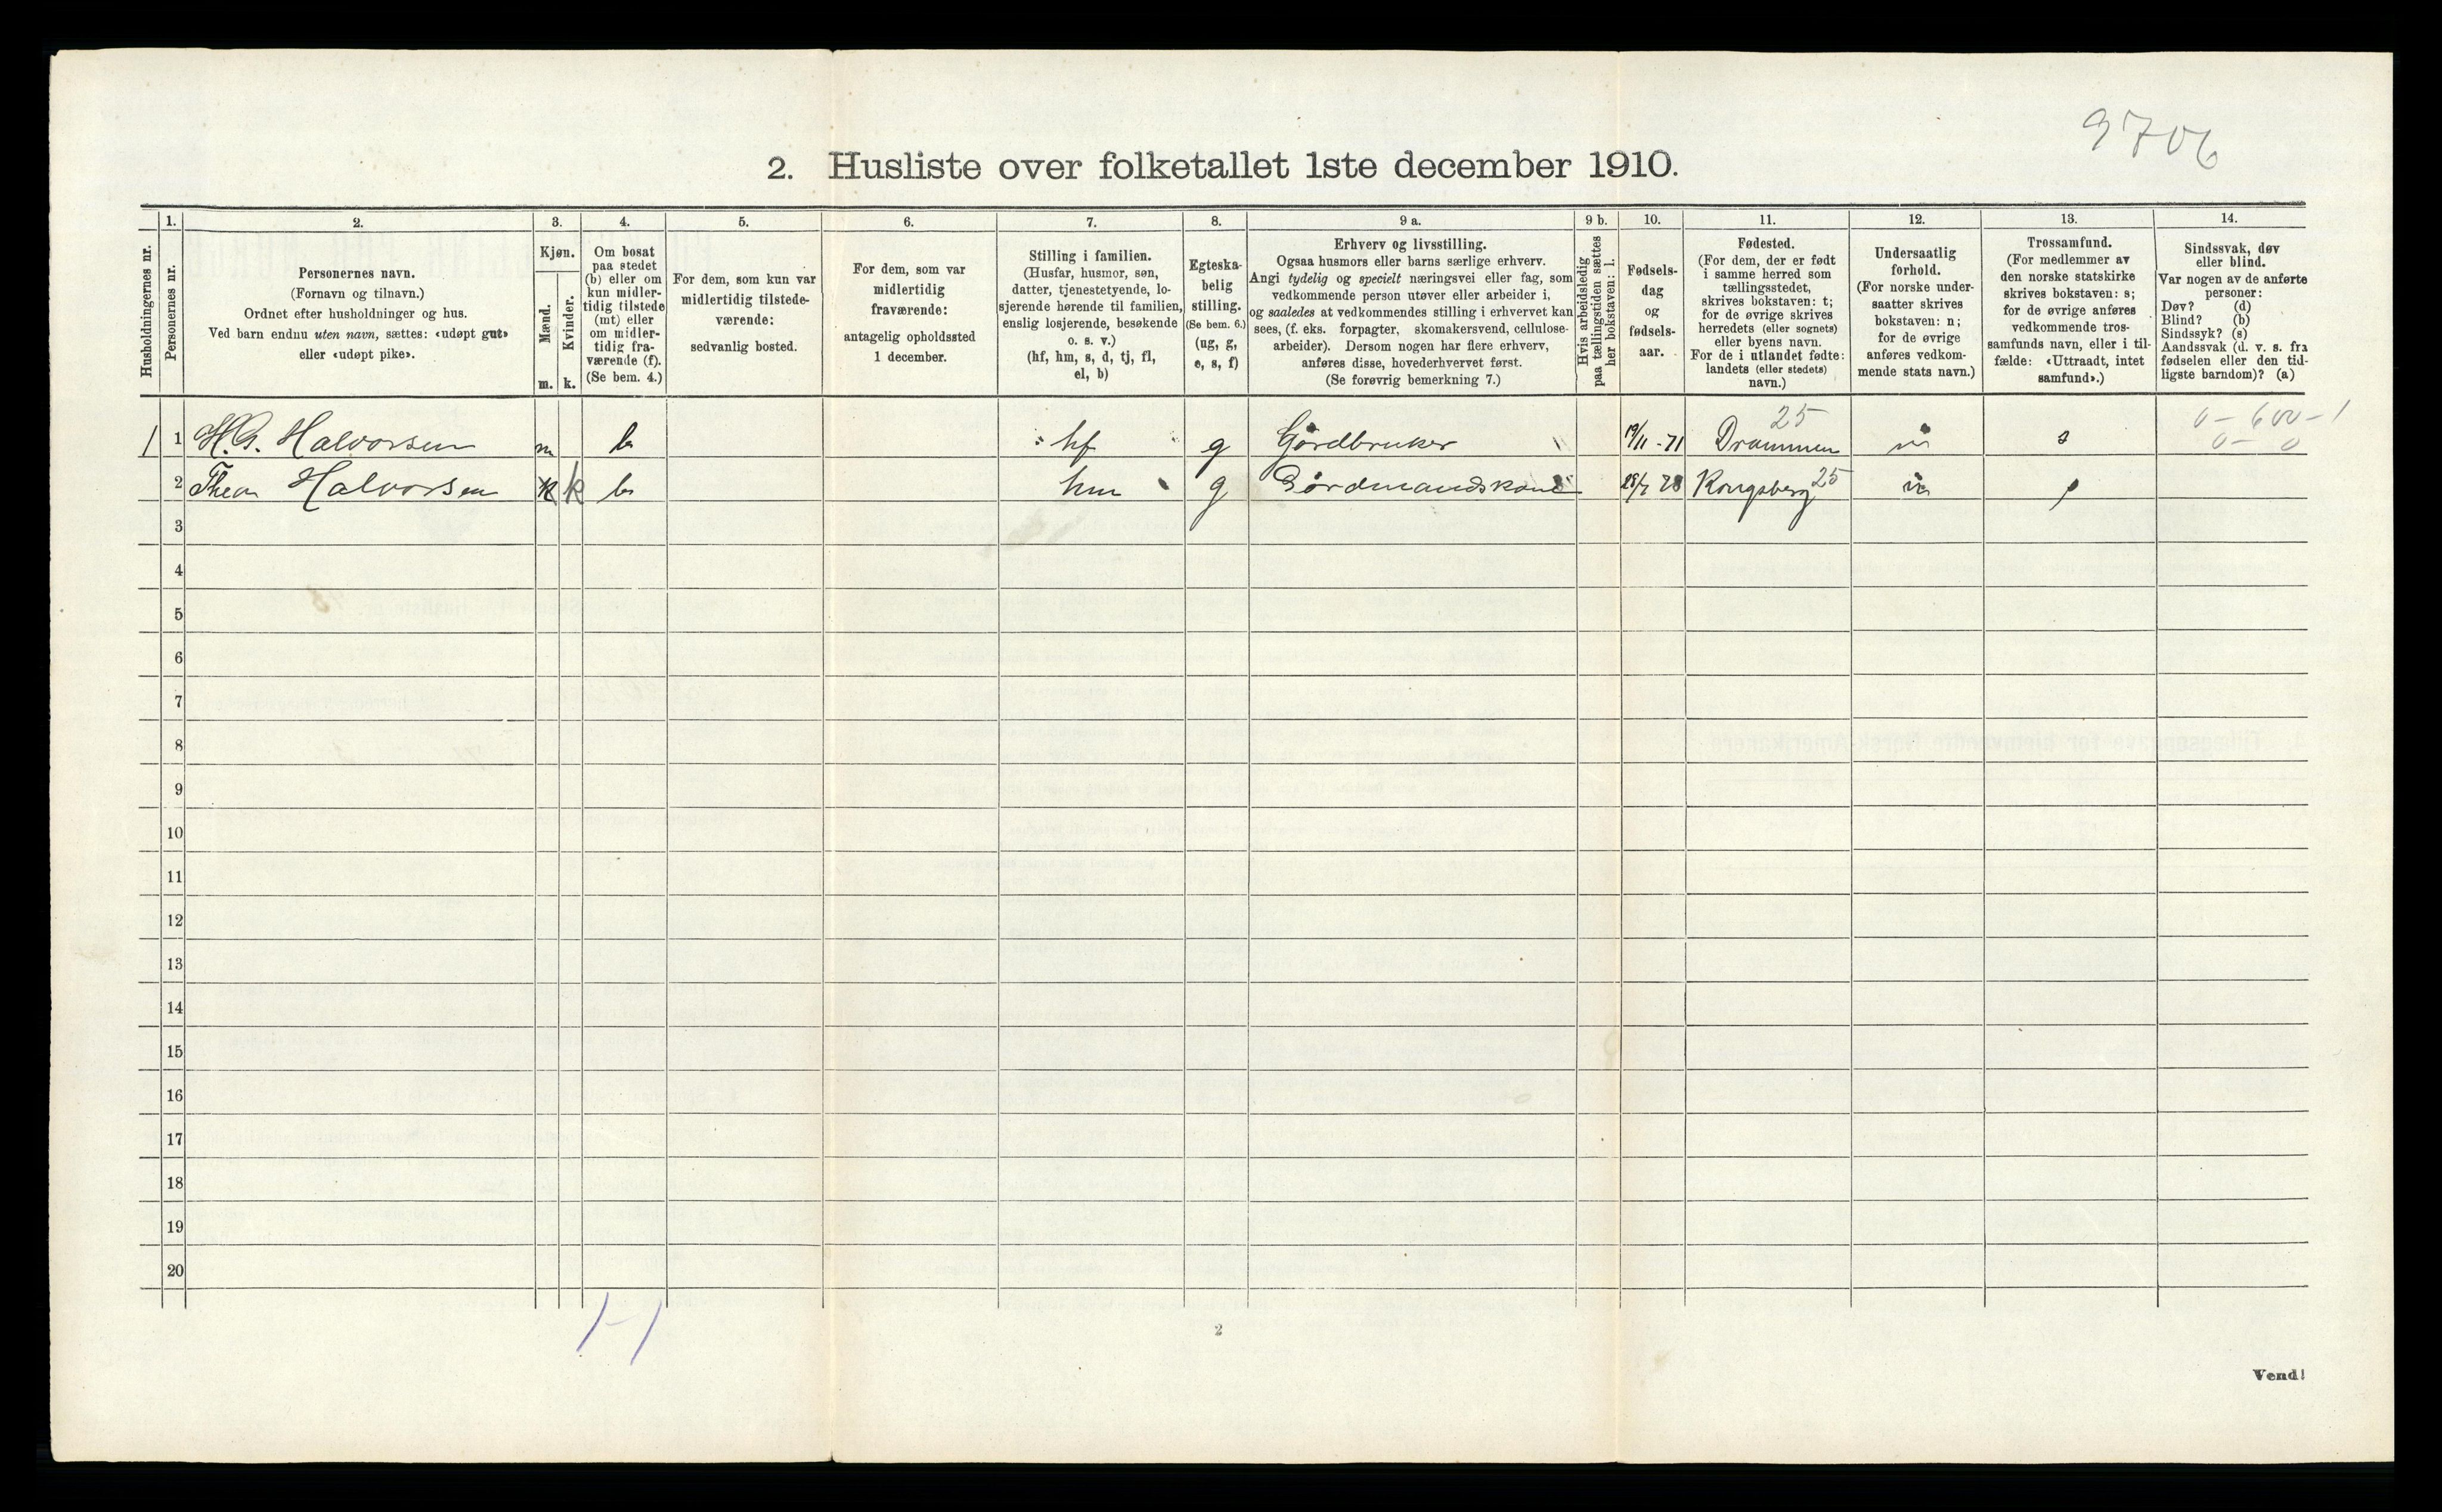 9706
2. Husliste over folketallet 1ste december 1910.
Husholdningernes nr.
1.
Personernes nr.
2.
Personernes navn.
(Fornavn og tilnavn.)
Ordnet efter husholdninger og hus.
Ved barn endnu uten navn, sættes: «udøpt gut»
eller «udøpt pike».
3.
Kjøn.
Mænd.
Kvinder.
m. k.
4.
Om bosat
paa stedet
(b) eller om
kun midler-
tidig tilstede
(mt) eller
om midler-
tidig fra-
værende (f).
(Se bem. 4.)
5.
For dem, som kun var
midlertidig tilstede-
værende:
sedvanlig bosted.
6.
For dem, som var
midlertidig
fraværende:
antagelig opholdssted
1 december.
7.
Stilling i familien.
(Husfar, husmor, søn,
datter, tjenestetyende, lo-
sjerende hørende til familien,
enslig losjerende, besøkende
o. s. v.)
(hf, hm, s, d, tj, fl,
el, b)
8.
Egteska-
belig
stilling.
(Se bem. 6.)
(ug, g,
e, s, f)
9 a.
Erhverv og livsstilling.
Ogsaa husmors eller barns særlige erhverv.
Angi tydelig og specielt næringsvei eller fag, som
vedkommende person utøver eller arbeider i,
og saaledes at vedkommendes stilling i erhvervet kan
sees, (f. eks. forpagter, skomakersvend, cellulose-
arbeider). Dersom nogen har flere erhverv,
anføres disse, hovederhvervet først.
(Se forøvrig bemerkning 7.)
9 b.
Hvis arbeidsledig
paa tællingstiden sættes
her bokstaven: l.
10.
Fødsels-
dag
og
fødsels-
aar.
11.
Fødested.
(For dem, der er født
i samme herred som
tællingsstedet,
skrives bokstaven: t;
for de øvrige skrives
herredets (eller sognets)
eller byens navn.
For de i utlandet fødte:
landets (eller stedets)
navn.)
12.
Undersaatlig
forhold.
(For norske under-
saatter skrives
bokstaven: n;
for de øvrige
anføres vedkom-
mende stats navn.)
13.
Trossamfund.
(For medlemmer av
den norske statskirke
skrives bokstaven: s;
for de øvrige anføres
vedkommende tros-
samfunds navn, eller i til-
fælde: «Uttraadt, intet
samfund».)
14.
Sindssvak, døv
eller blind.
Var nogen av de anførte
personer:
Døv? (d)
Blind? (b)
Sindssyk? (s)
Aandssvak (d. v. s. fra
fødselen eller den tid-
ligste barndom)? (a)
25 0-600-1
1 1 H.G. Halvorsen m b hf g Gårdbruker 19/11-71 Drammen n s 0-0
2 Thea Halvorsen k k b hm g Gårdmandskone 28/7 78 Kongsberg 25 n s
3
4
5
6
7
8
9
10
11
12
13
14
15
16
17
18
19
20
1-1
2
Vend!